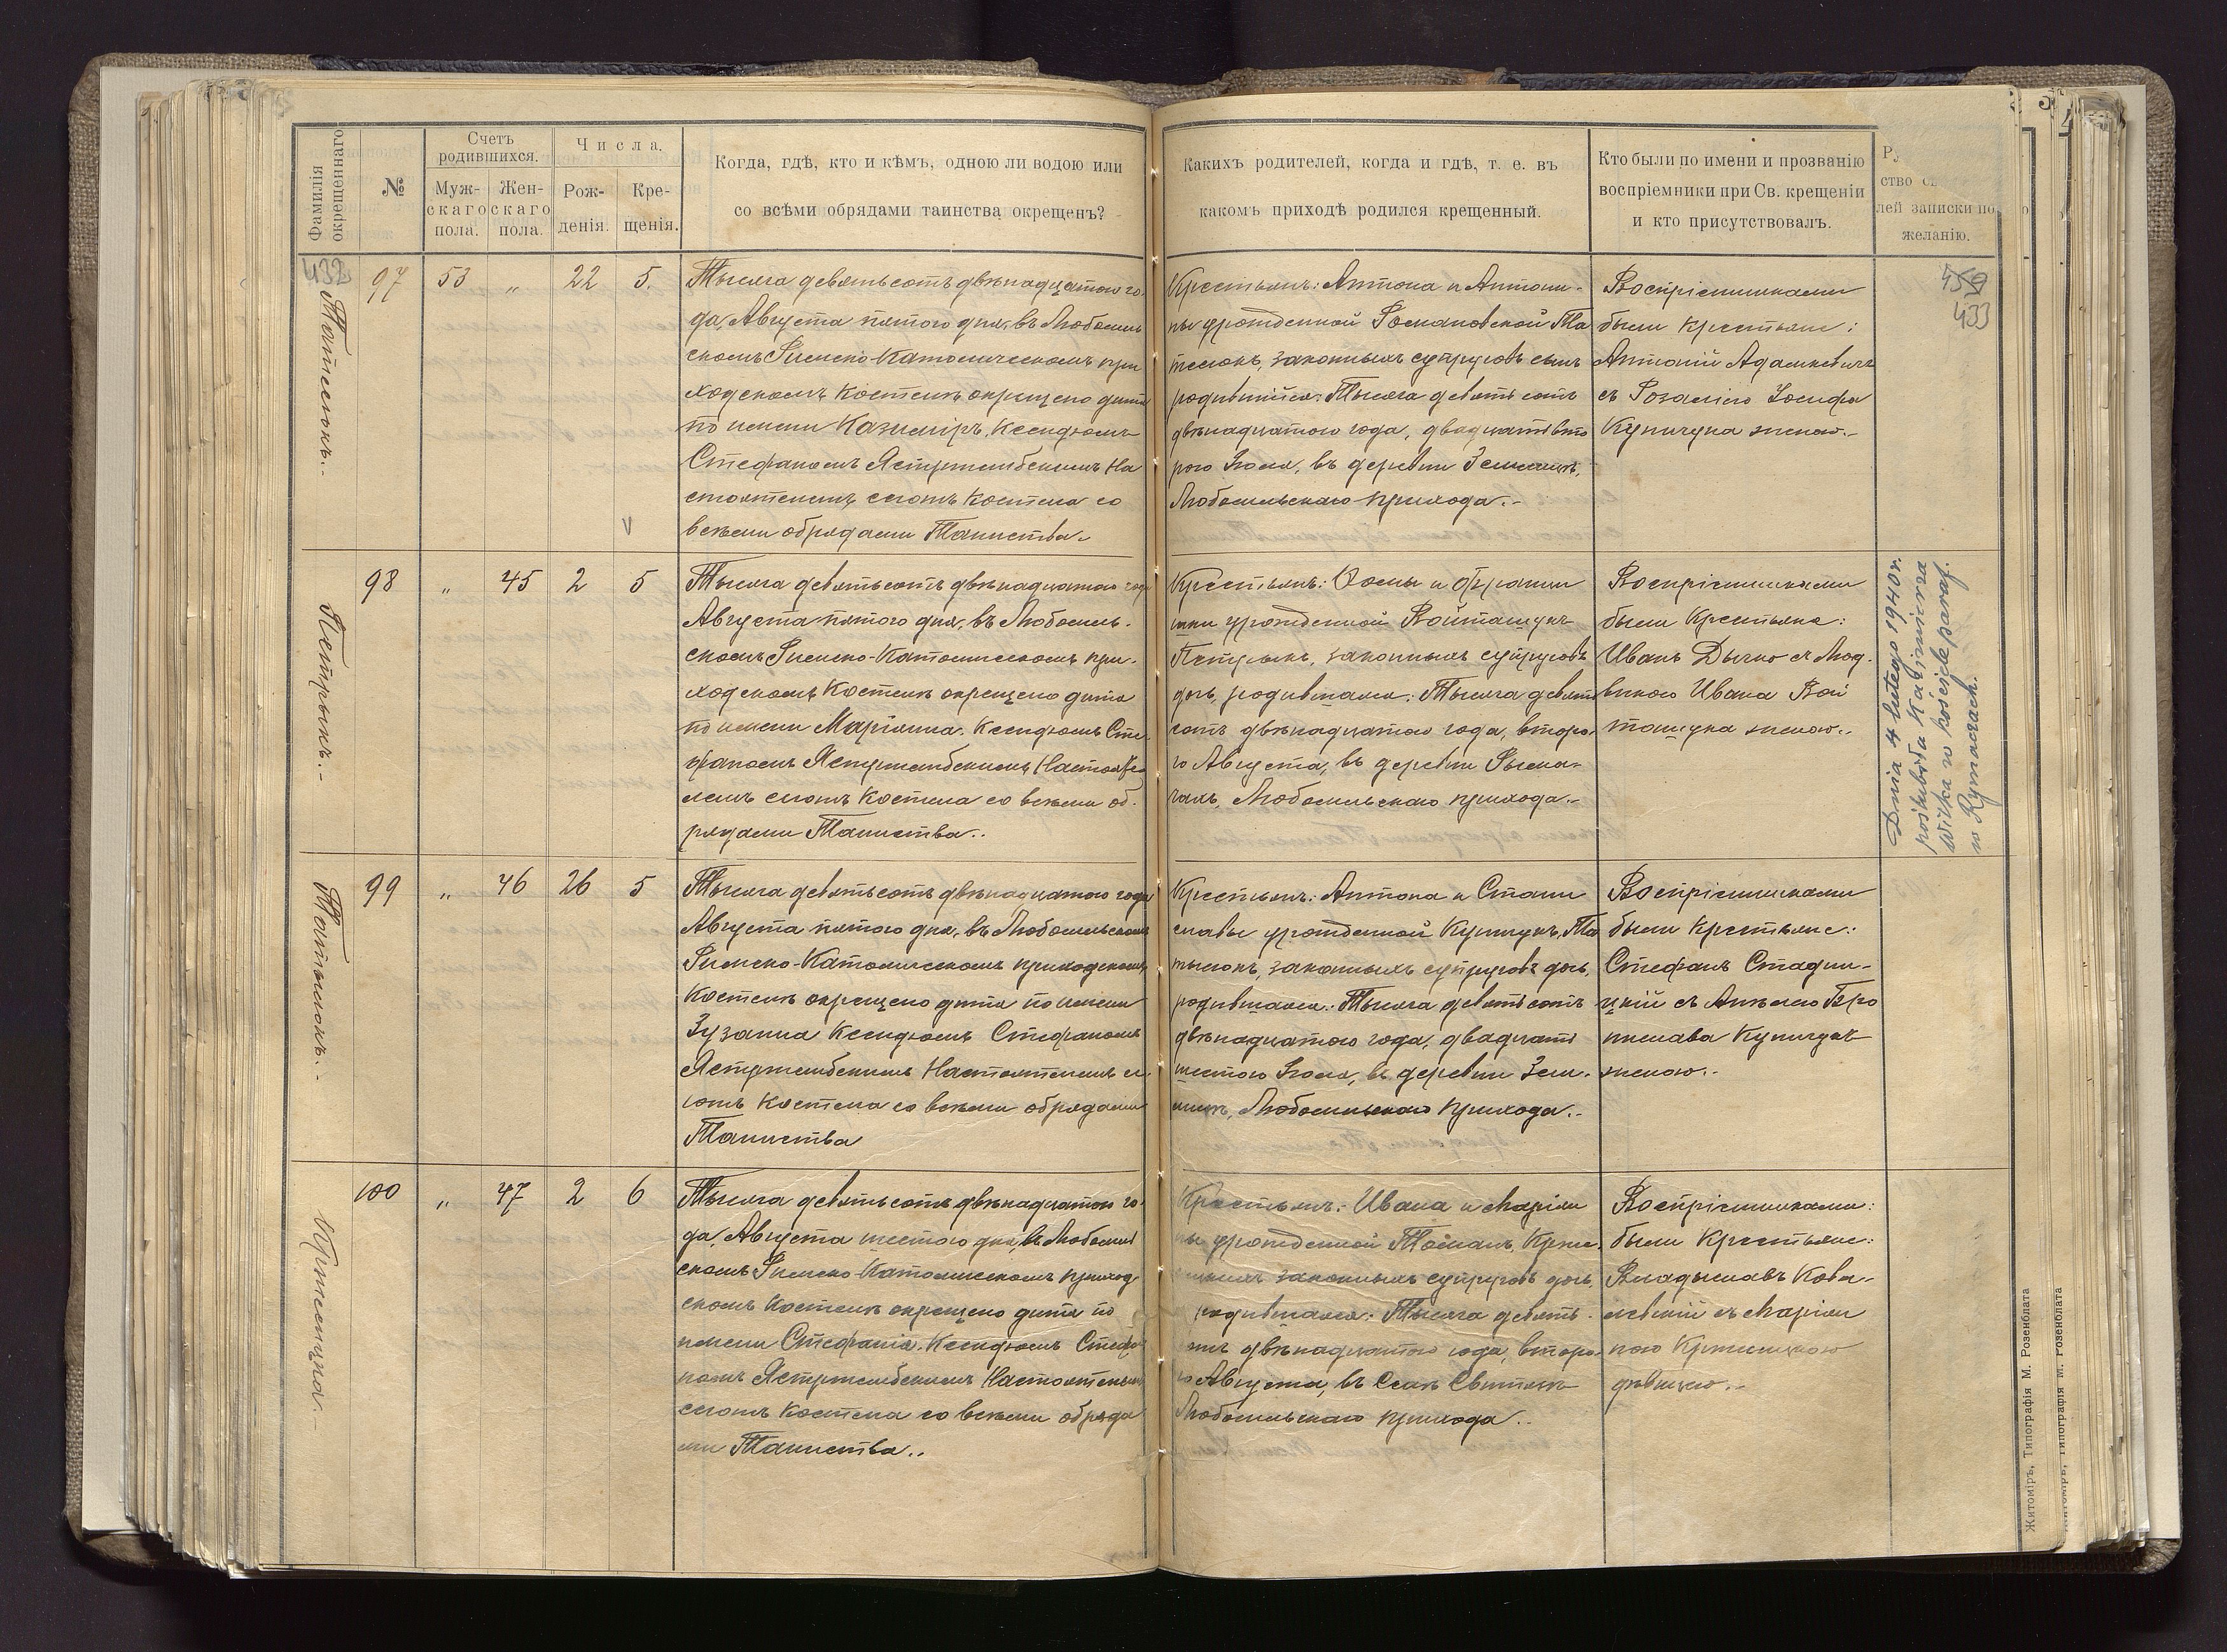 Фамилія окрещеннаго
№
Счетъ родившихся.
Муж-скаго пола.
Жен-скаго пола.
Числа.
Рож-денія.
Кре-щенія.
Когда, гдѣ, кто и кѣмъ, одною ли водою или
со всѣми обрядами таинства окрещенъ?
Какихъ родителей, когда и гдѣ, т. е. въ
какомъ приходѣ родился крещенный.
Кто были по имени и прозванію
воспріемники при Св. крещеніи
и кто присутствовалъ.
ство
лей записки по
желанію.
432
97 53 „ 22 5.
Тысяча девятьсотъ двѣнадцатого го-
да, Августа пятого дня, въ Любомль
скомъ Римско-Католическомъ при
ходскомъ Костелѣ окрещено дитя
по имени Казиміръ, Ксендзомъ
Стефаномъ Ястржембскимъ На
стоятелемъ сегожъ Костела со
всѣми обрядами Таинства.
Крестьянъ: Антона и Антони-
ны урожденной Романовской Та
тысюкъ, законныхъ супруговъ сынъ
родившійся: Тысяча девятьсотъ
двѣнадцатого года, двадцать вто
рого Іюля, въ деревни Землицѣ,
Любомльскаго прихода.
Воспріемниками
были Крестьяне:
Антоній Адамкевичъ
съ Розаліею Іосифа
Купичука женою.
459
433
98 „ 45 2 5
Петрыкъ.
Тысяча девятьсотъ двѣнадцатого года
Августа пятого дня, въ Любомль-
скомъ Римско-Католическомъ при-
ходскомъ Костелѣ окрещено дитя
по имени Маріянна. Ксендзомъ Сте-
фаномъ Ястржембскимъ Настояте
лемъ сегожъ Костела со всѣми об-
рядами Таинства.
Крестьянъ: Ѳомы и Франци
шки урожденной Войташукъ
Петрыкъ, законныхъ супруговъ
дочь, родившаяся: Тысяча девять
сотъ двѣнадцатого года, второ-
го Августа, въ деревни Рыма-
чахъ, Любомльскаго прихода.
Воспріемниками
были Крестьяне:
Иванъ Дычко съ Люд-
викою Ивана Вой
ташука женою.
Dnia 4 lutego 1940 r.
poślubiła Kazimierza
Wilka w kościele paraf.
w Rymaczach.
99 „ 46 26 5
Тысяча девятьсотъ двѣнадцатого года
Августа пятого дня, въ Любомльскомъ
Римско-Католическомъ приходскомъ
Костелѣ окрещено дитя по имени
Зузанна Ксендзомъ Стефаномъ
Ястржембскимъ Настоятелемъ се-
гожъ Костела со всѣми обрядами
Таинства
Крестьянъ: Антона и Стани
славы урожденной Купичукъ, Та
тысюкъ, законныхъ супруговъ дочь,
родившаяся: Тысяча девятьсотъ
двѣнадцатого года, двадцать
шестого Іюля, въ деревни Зем-
лицѣ, Любомльскаго прихода.
Воспріемниками
были Крестьяне:
Стефанъ Стадни-
цкій съ Анѣлею Бро
нислава Купичука
женою.
100 „ 47 2 6
Тысяча девятьсотъ двѣнадцатого го-
да, Августа шестого дня, въ Любомль
скомъ Римско-Католическомъ приход
скомъ Костелѣ окрещено дитя по
имени Стефанія. Ксендзомъ Стефа
номъ Ястржембскимъ Настоятелемъ
сегожъ Костела со всѣми обряда
ми Таинства.
Крестьянъ: Ивана и Маріян
ны урожденной
законныхъ супруговъ дочь,
родившаяся: Тысяча девять-
сотъ двѣнадцатого года, второ-
го Августа, въ Селѣ Свитязѣ
Любомльскаго прихода.
Воспріемниками:
были Крестьяне:
Владыславъ Кова-
левскій съ Маріян
ною
дѣвицею.
Житоміръ, Типографія М. Розенблата
Житоміръ, Типографія М. Розенблата